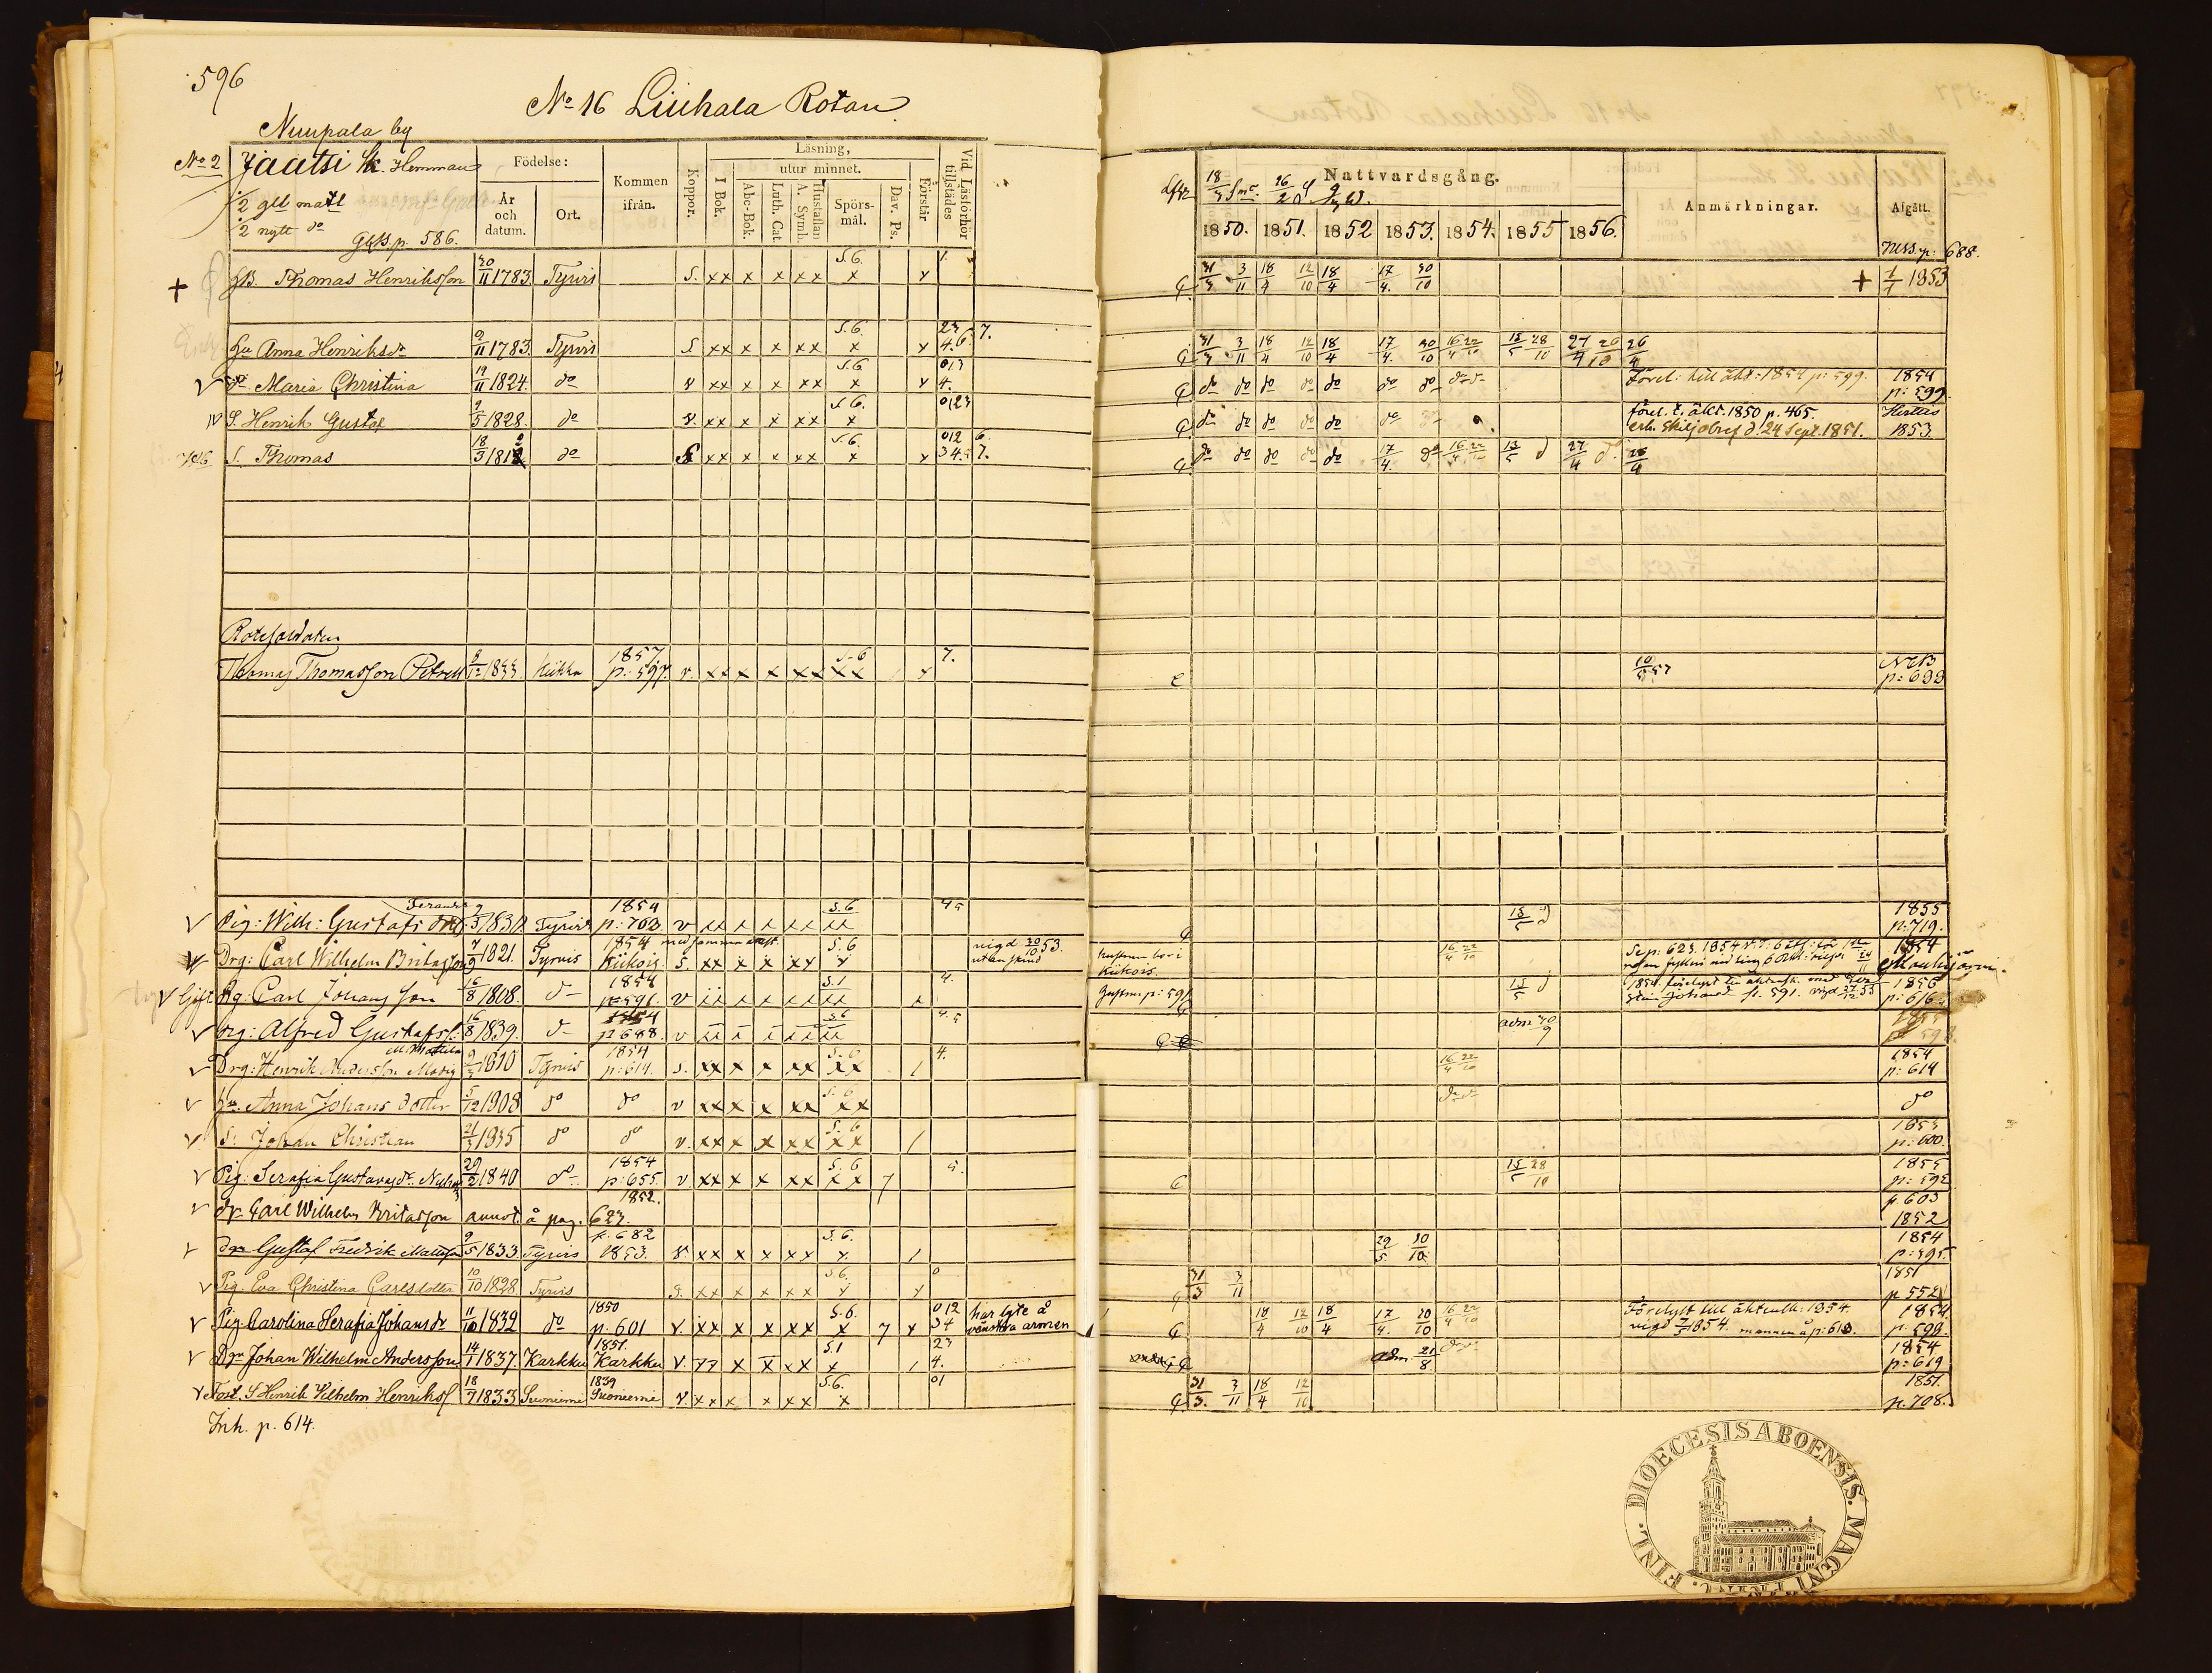 596
No 16 Liuhala Rotan
Nuupala by
No 2 Jaatsi Sk. Hemman
1/2 gl. matl
1/2 nytt do
GKB. p. 586.
Födelse:
År och datum.
Ort.
Kommen ifrån.
Koppor.
Läsning,
utur minnet.
I Bok.
Abc-Bok.
Luth. Cat.
A. Symb.
Hustaflan
Spörs-mål.
Dav. Ps.
Förstår
Vid Läsförhör tillstädes
Nattvardsgång.
1850. 1851. 1852 1853. 1854. 1855 1856.
Anmärkningar.
Afgått.
NKB. p. 688.
+ Thomas Henriksson 30/11 1783. Tyrvis S. xx x x x x S.6. x x 1. 31/3 3/11 18/4 12/10 18/4 17/4. 30/10 + 1/1 1853
Hu Anna Henriksdr 9/11 1783. Tyrvis S xx x x xx S.6. x x 23 4.6. 7. 31/3 3/11 18/4 12/10 18/4 17/4. 30/10 16/4 22/10 13/5 28/10 27/4 26/10 26/4
v Dr. Maria Christina 19/11 1824. do v xx x x xx S.6. x x 013 4. do do do do do do do do Förel: till äkt: 1854 p: 599. 1854 p: 599.
S. Henrik Gustaf 9/5 1828. do v. xx x x xx S.6. x 0123 do do do do do do förel. t. äkt. 1850 p. 465. erh. skiljobref d. 24 Sept. 1851. 1853.
S. Thomas 18/9 181 do S xx x x xx S.6. x x 012 345 6. 7. do do do do do 17/4. do 16/4 22/10 13/5 d 27/4 d. 26/4
Rotesoldaten
Thomas Thomasson 12 1833 Kiikka 1857 p: 597. v. xx x x xx S-6 xx x 7. NKB p: 699
v Pig: Wilh: Gustafs dr 9/5 1830. Tyrvis 1854 p: 703 v xx x x xx S.6 xx 45 13/5 d 1855 p: 719.
Drg: Carl Wilhelm Britasson 7/9 1821. Tyrvis 1854 Kiikois. S. xx x x xx S.6 x vigd 30/10 53. Hustrun bor i Kiikois 16/4 22/10 1854
v Gift Drg: Carl Johansson 16/8 1808. d- 1854 p: 591. v xx x x xx S.1 xx x 4. Hustrun p: 591 13/5 d 1856 p: 616
v Drg: Alfred Gustafss: 16/8 1839. d- p 688. v xx x x xx S.6 xx 4.5 adm 30/9 598.
v Drg: Henrik Anderss. 9/3 1810 Tyrvis 1854 p: 614. S. xx x x xx S-6 xx / 4. 16/4 22/10 1854 p: 614
v Hu. Anna Johans dotter 5/12 1808 do do v xx x x xx S-6 xx d. d. do
v S: Johan Christian 21/3 1835 do do v. xx x x xx S.6 xx / 1853 p: 600.
v Pig: Serafia Gustavsdr. 29/2 1840 do 1854 p: 655. v xx x x xx S.6 xx 7 5. 13/5 28/10 1855 p: 592
v dr Carl Wilhelm Britasson annot. å pag. 623. 1852. p. 603 1852
v Dgr Gustaf Fredrik Mattsson 9/5 1833 Tyrvis p. 682 1853. v xx x x xx S.6. x / 29/5. 30/10. 1854 p: 595.
v Pig. Eva Christina Carlsdotter 10/10 1828. Tyrvis S. xx x x xx S.6. x x 0 31/3 3/11 1851 p 552
v Pig Carolina Serafia Johansdr 11/10 1832 do 1850 p. 601 v. xx x x xx S.6. x 7 x 012 34 har lyte å venstra armen 18/4 12/10 18/4 17/4. 30/10 16/4 22/10 Förelyst till äktensk: 1854. vigd 7/1 1854. mannen å p: 613. 1854. p: 599.
v Dgr Johan Wilhelm Andersson 14/1 1837. Karkku 1851. Karkku v. xx x x xx S.1 x / 23 4. adm. 21/8 1854. p: 619
v Fost. S Henrik Wilhelm Henrikss 18/7 1833 Suoniemi 1839 Suoniemi v. xx x x xx S.6. x 01 31/3. 3/11 18/4 12/10 1851. p. 708.
Inh. p. 614.
FINL. DIOECESIS ABOENSIS. MAGNI PRINC.